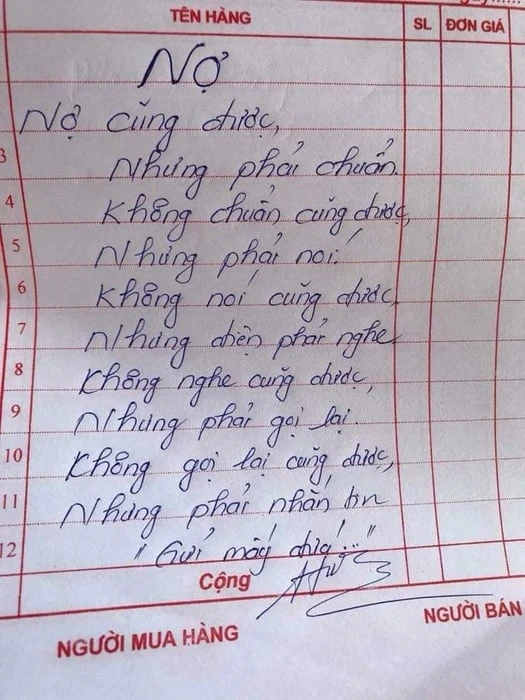 TÊN HÀNG SL ĐƠN GIÁ
NỢ
Nợ cũng được,
3 Nhưng phải chuẩn.
4 Không chuẩn cũng được,
5 Nhưng phải nói.
6 Không nói cũng được,
7 Nhưng điện phải nghe
8 Không nghe cũng được,
9 Nhưng phải gọi lại.
10 Không gọi lại cũng được,
11 Nhưng phải nhắn tin
12 "Gửi mấy chỉ!..."
Cộng
NGƯỜI MUA HÀNG NGƯỜI BÁN